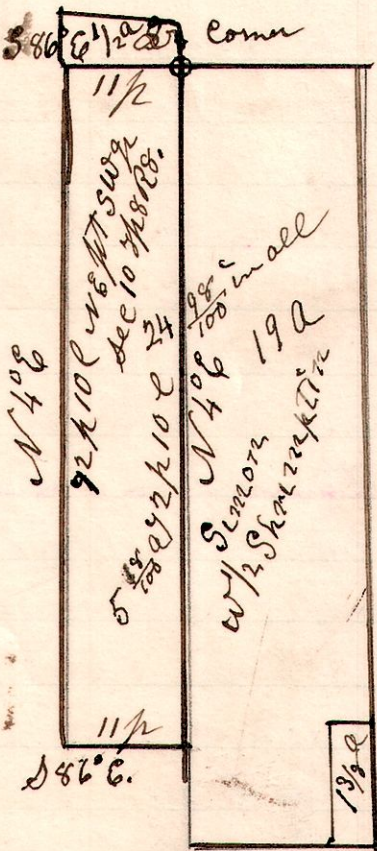 S 86° E 1/2 a
Corner
11 p
N 4° E
92 p 10 l NE pt SW qr
Sec 10 Tp 8 R 8.
5 98/100 a 92 p 10 l
24 98/100 a in all
N 4° E
19 a
Simon
W 1/2 Shrumptin
11 p
S 86° E.
1 3/8 a